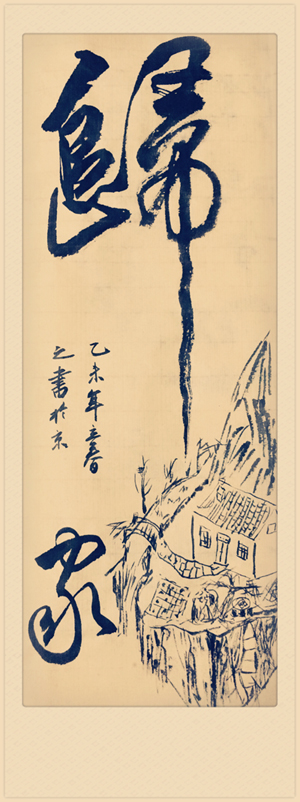 歸家
乙未年立春
之書於京